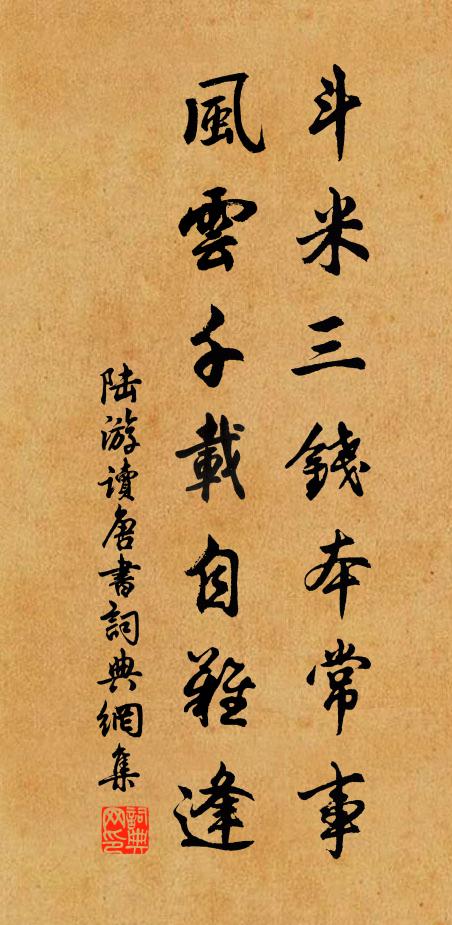 斗米三錢本常事
風雲千載自難逢
陆游讀唐書詞典網集
詞典網印